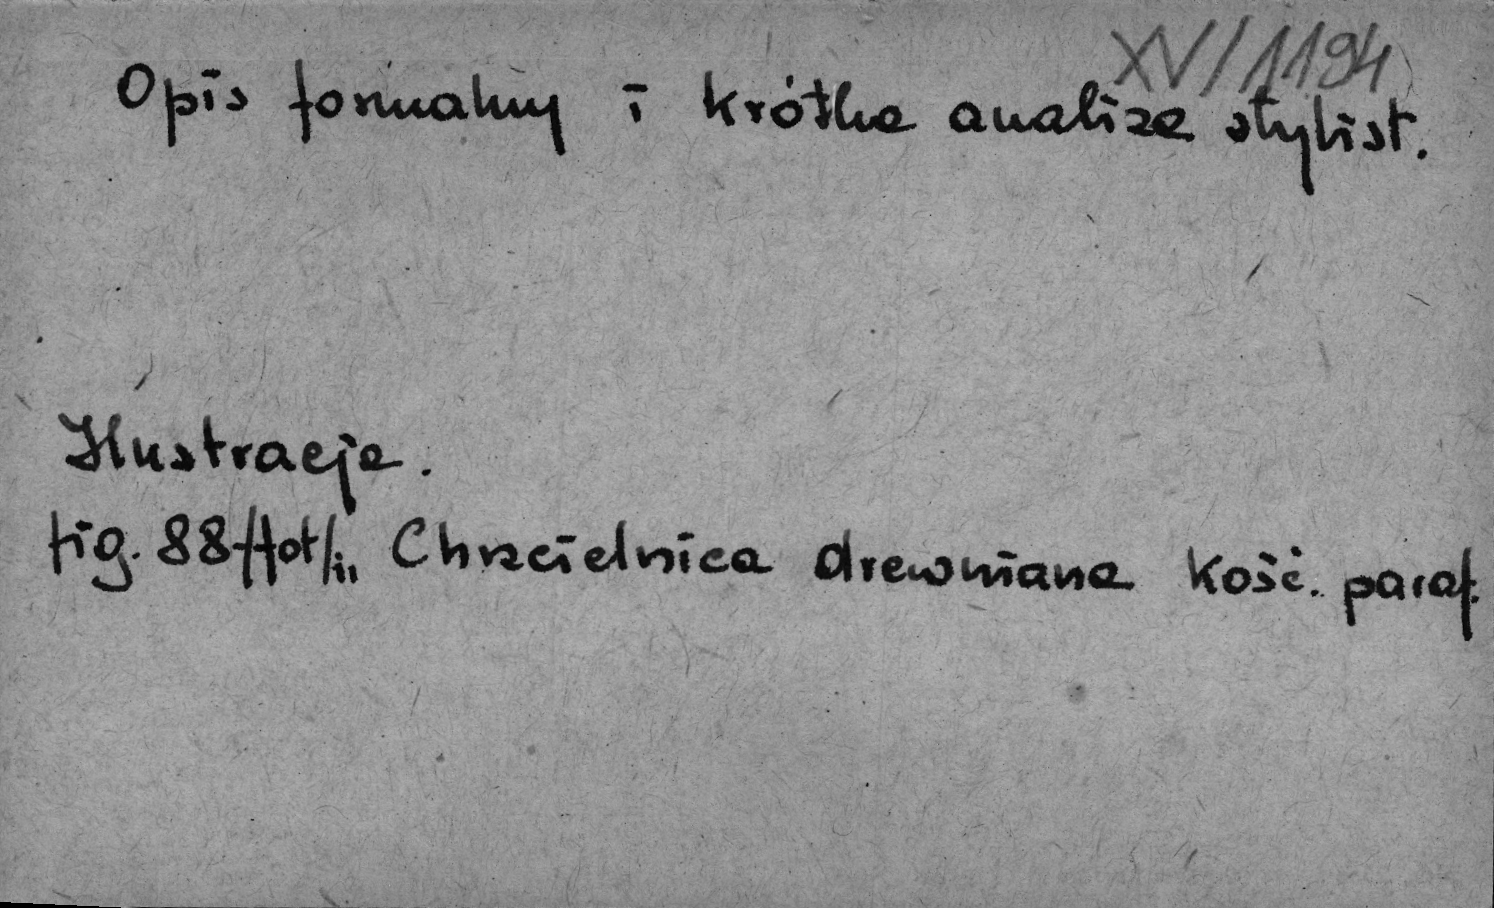 XV/1194
Opis formalny i krótka analiza stylist.
Ilustracje.
fig. 88 /fot/ii Chrzcielnica drewniana kość. paraf.